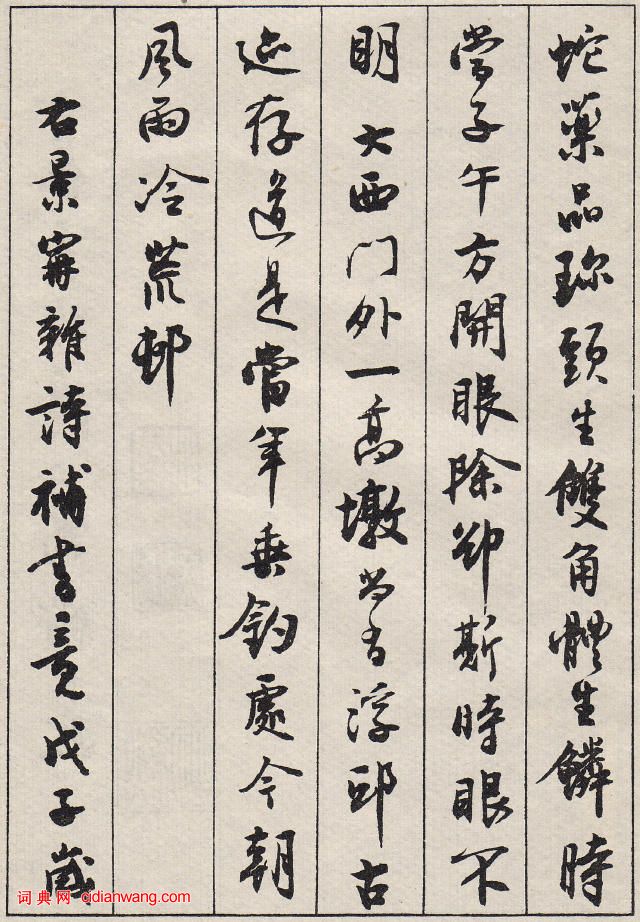 蛇藥品珎頸生雙角體生鱗時
當子午方開眼除卻斯時眼不
明 大西門外一高墩尚有浮邱古
迹存道是當年垂釣處今朝
風雨冷荒邨
右景寗雜詩補書竟戊子歲
词典网 cidianwang.com